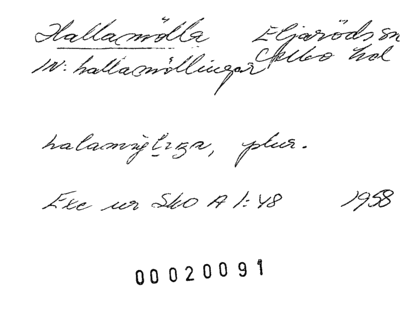 Hallamölla Eljaröds sn
IN: hallamöllingar Albo hd
plur.
Exc ur Sko A 1:48 1958
00020091